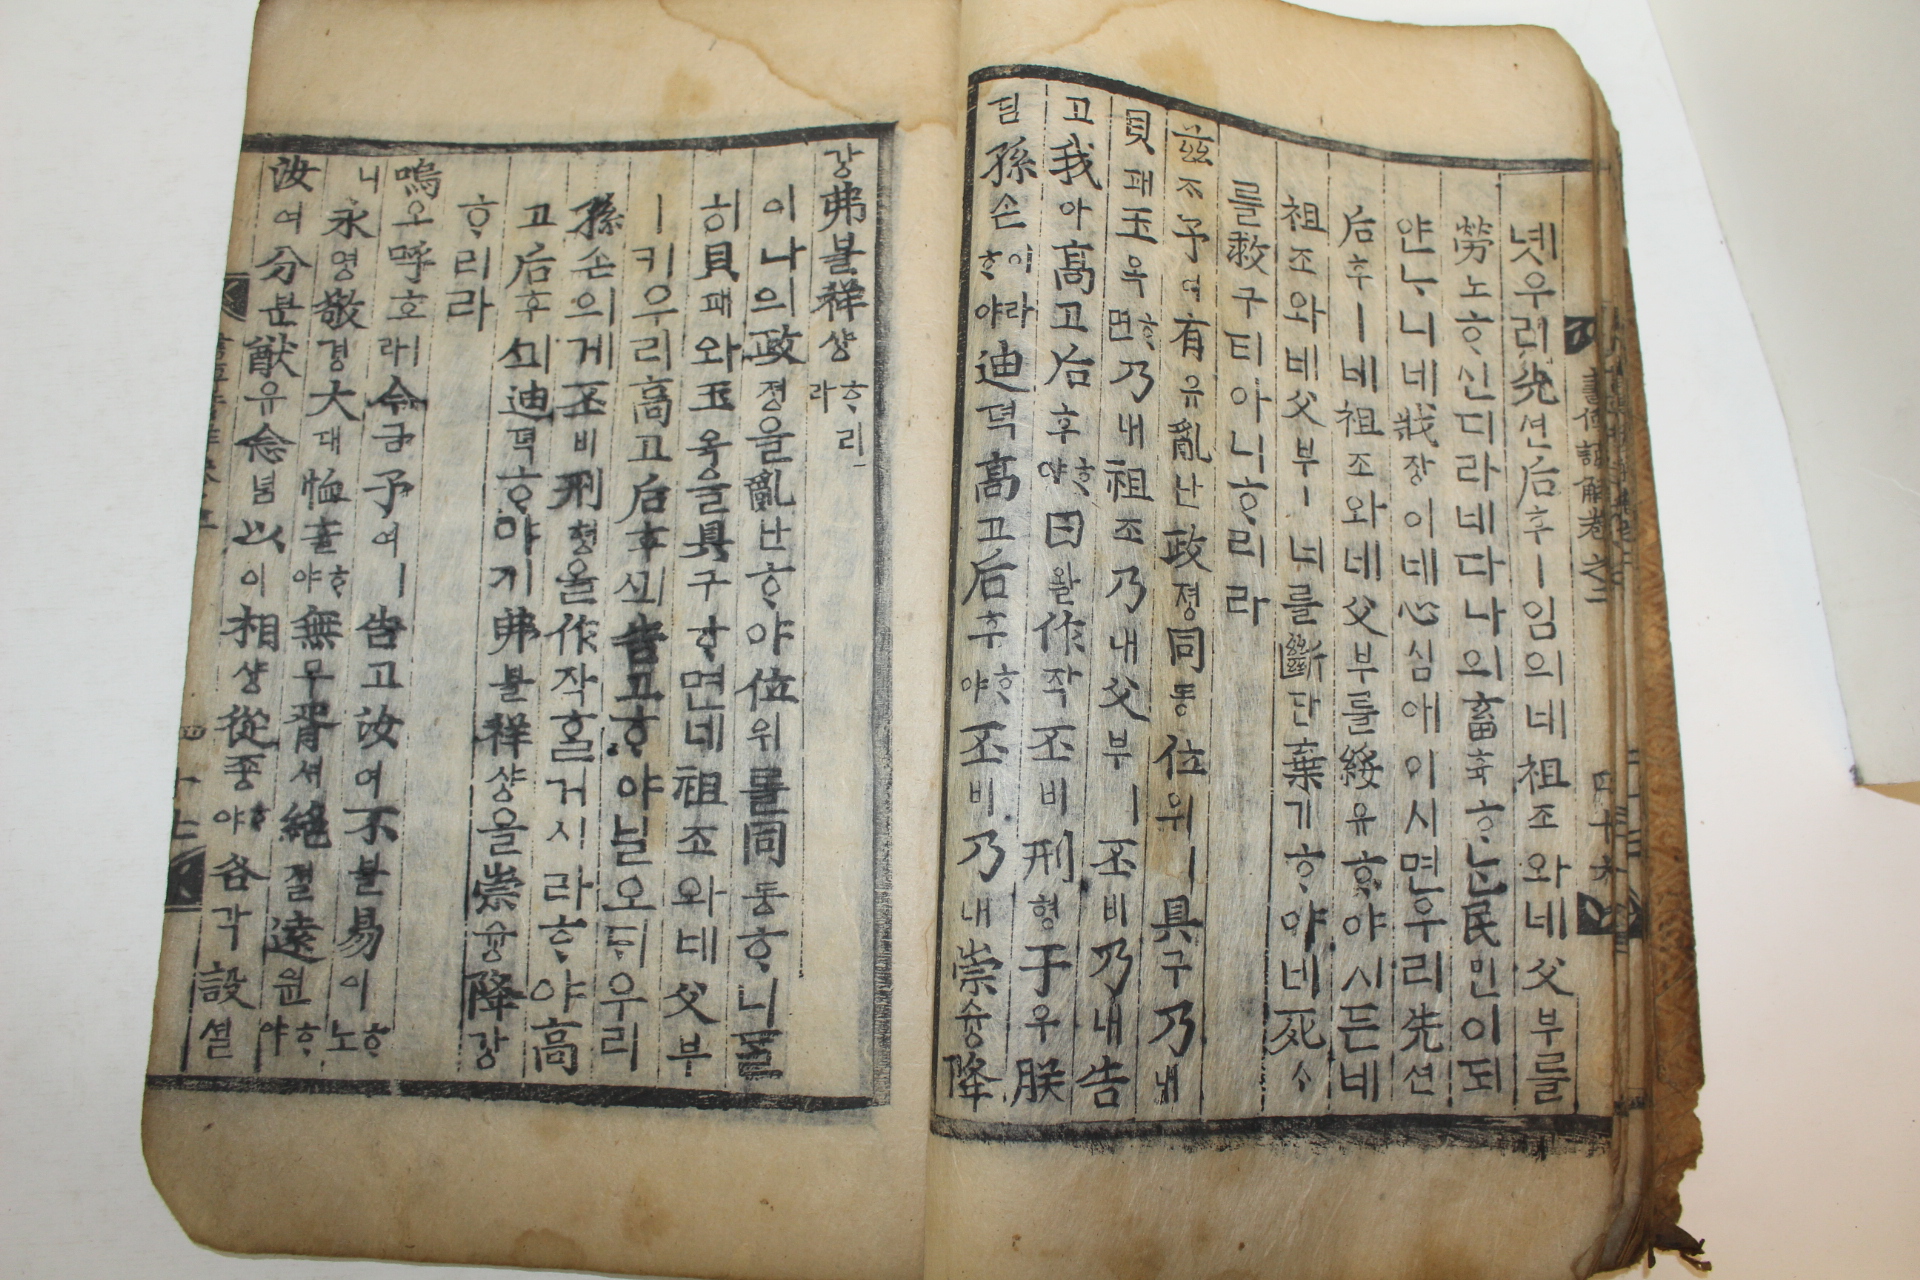 녯우리先션后후ㅣ임의네祖조와네父부를
勞노ᄒᆞ신디라네다나의畜휵ᄒᆞᄂᆞᆫ民민이되
얀ᄂᆞ니네戕장이네心심애이시면우리先션
后후ㅣ네祖조와네父부를綏유ᄒᆞ야시든네
祖조와네父부ㅣ너를斷단棄기ᄒᆞ야네死ᄉᆞ
를救구티아니ᄒᆞ리라
玆ᄌᆞ予여有유亂난政졍同동位위ㅣ具구乃내
貝패玉옥ᄒᆞ면乃내祖조乃내父부ㅣ丕비乃내告
고我아高고后후ᄒᆞ야曰왈作작丕비刑형于우朕
딤孫손이라ᄒᆞ야迪뎍高고后후ᄒᆞ야丕비乃내崇슝降
書傳諺解卷之二
四十六
강弗블祥샹ᄒᆞ리라
이나의政졍을亂난ᄒᆞ야位위를同동ᄒᆞ니를
히貝패와玉옥을具구ᄒᆞ면네祖조와네父부
ㅣ키우리高고后후ᄭᅴ告고ᄒᆞ야닐오ᄃᆡ우리
孫손의게丕비刑형을作작ᄒᆞᆯ거시라ᄒᆞ야高
고后후ᄭᅴ迪뎍ᄒᆞ야기弗블祥샹을崇슝降강
ᄒᆞ리라
嗚오呼호ㅣ라今금予여ㅣ告고汝여不블易이ᄒᆞ노
니永영敬경大대恤휼ᄒᆞ야無무胥셔絶졀遠원ᄒᆞ야
汝여分분猷유念념以이相샹從죵ᄒᆞ야各각設셜